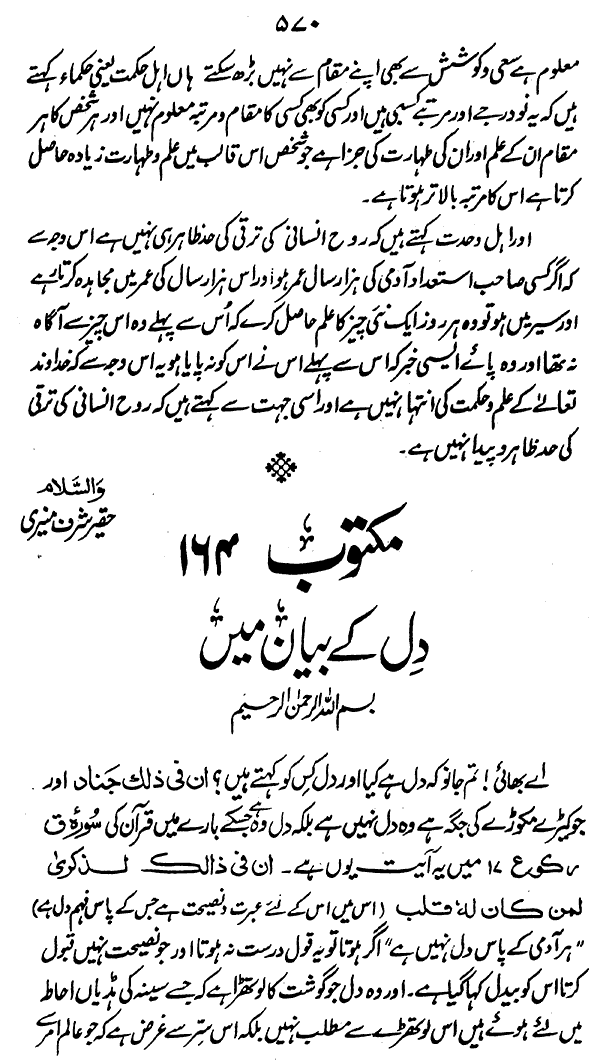 ۵۷۰
معلوم ہے سعی و کوشش سے بھی اپنے مقام سے نہیں بڑھ سکتے ہاں اہل حکمت یعنی حکماء کہتے
ہیں کہ یہ نو درجے اور مرتبے کسبی ہیں اور کسی کو بھی کسی کا مقام و مرتبہ معلوم نہیں اور ہر شخص کا ہر
مقام ان کے علم اور ان کی طہارت کی جزا ہے جو شخص اس قالب میں علم و طہارت زیادہ حاصل
کرتا ہے اس کا مرتبہ بالا تر ہوتا ہے۔
اور اہل وحدت کہتے ہیں کہ روح انسانی کی ترقی کی حد ظاہر ہی نہیں ہے اس وجہ سے
کہ اگر کسی صاحب استعداد آدمی کی ہزار سال عمر ہو اور اس ہزار سال کی عمر میں مجاہدہ کرتا رہے
اور سیر میں ہو تو وہ ہر روز ایک نئی چیز کا علم حاصل کرے کہ اُس سے پہلے وہ اس چیز سے آگاہ
نہ تھا اور وہ پائے ایسی خبر کہ اس سے پہلے اس نے اس کو نہ پایا ہو یہ اس وجہ سے کہ خداوند
تعالےٰ کے علم و حکمت کی انتہا نہیں ہے اور اسی جہت سے کہتے ہیں کہ روح انسانی کی ترقی
کی حد ظاہر و پیدا نہیں ہے۔
والسّلام
حقیر شرف منیری
مکتوب ۱۶۴
دِل کے بیان میں
بسم اللہ الرحمٰن الرحیم
اے بھائی! تم جانو کہ دل ہے کیا اور دل کِس کو کہتے ہیں؟ ان فی ذلك جناد اور
جو کیڑے مکوڑے کی جگہ ہے وہ دل نہیں ہے بلکہ دل وہ ہے جسکے بارے میں قرآن کی سُورۂ ق
رکوع ۱۷ میں یہ آیت یوں ہے۔ ان فی ذالك لذكریٰ
لمن كان لهٗ قلب (اس میں اس کے لئے عبرت و نصیحت ہے جس کے پاس فہم دل ہے)
"ہر آدمی کے پاس دل نہیں ہے" اگر ہوتا تو یہ قول درست نہ ہوتا اور جو نصیحت نہیں قبول
کرتا اس کو بیدل کہا گیا ہے۔ اور وہ دل جو گوشت کا لوتھڑا ہے کہ جسے سینہ کی ہڈیاں احاطہ
میں لئے ہوئے ہیں اس لوتھڑے سے مطلب نہیں بلکہ اس سِرّ سے غرض ہے کہ جو عالم امر سے